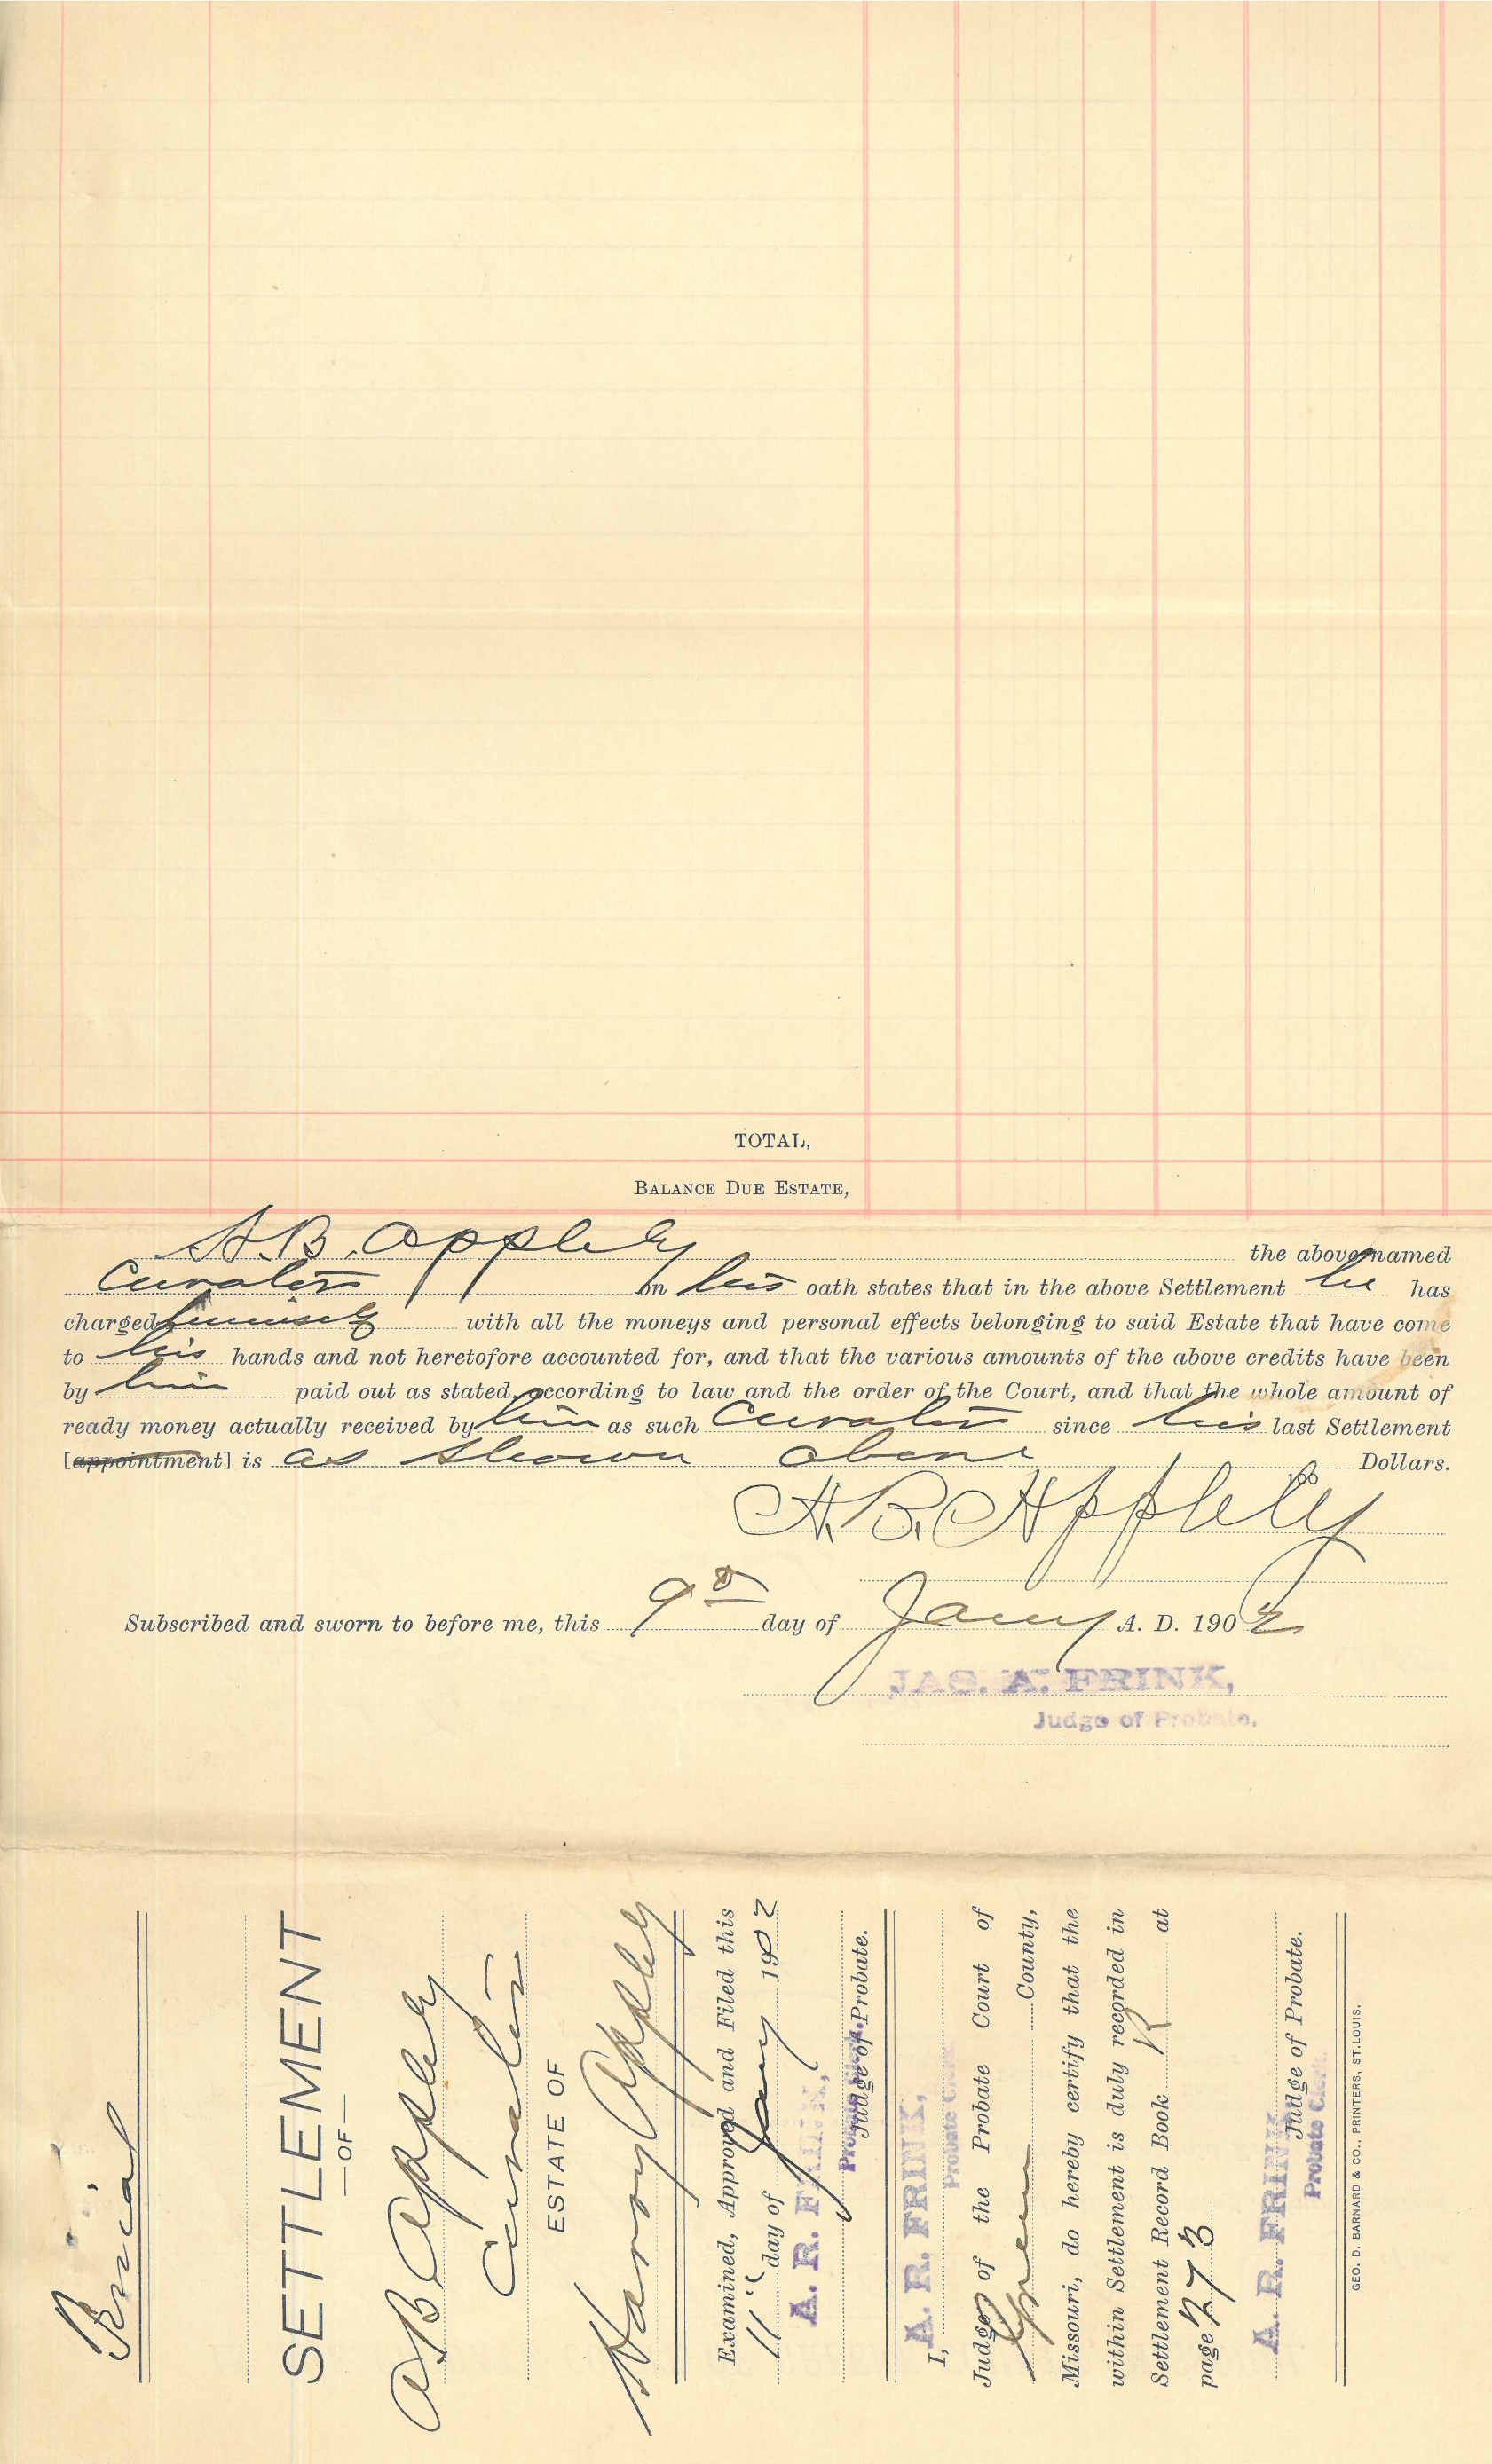 TOTAL,
BALANCE DUE ESTATE,
A. B. Appleby the above named
Curator on his oath states that in the above Settlement he has
charged himself with all the moneys and personal effects belonging to said Estate that have come
to his hands and not heretofore accounted for, and that the various amounts of the above credits have been
by him paid out as stated, according to law and the order of the Court, and that the whole amount of
ready money actually received by him as such Curator since his last Settlement
[appointment] is as shown above Dollars.
100
A. B. Appleby
Subscribed and sworn to before me, this 9th day of Jany A. D. 1902
JAS. A. FRINK,
Judge of Probate.
SETTLEMENT
—OF—
A B Appleby
Curator
ESTATE OF
Harry Appleby
Examined, Approved and Filed this
11" day of Jany 1902
A. R. FRINK,
Probate Clerk.
Judge of Probate.
I, A. R. FRINK,
Probate Clerk
Judge of the Probate Court of
Green County,
Missouri, do hereby certify that the
within Settlement is duly recorded in
Settlement Record Book R at
page 273
A. R. FRINK
Judge of Probate.
Probate Clerk.
GEO. D. BARNARD & CO., PRINTERS, ST. LOUIS.